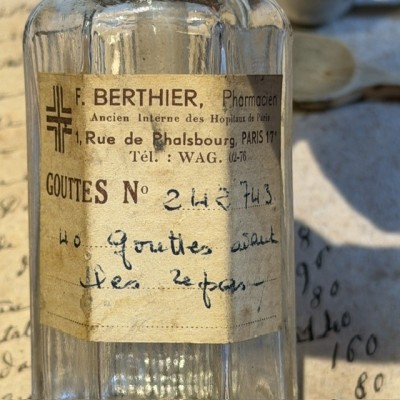 F. BERTHIER, Pharmacien
Ancien Interne des Hopitaux de Paris
1, Rue de Phalsbourg, PARIS 17e
Tél. : WAG. 02-76
GOUTTES No 242743
40 gouttes avant
les repas
80
160
80